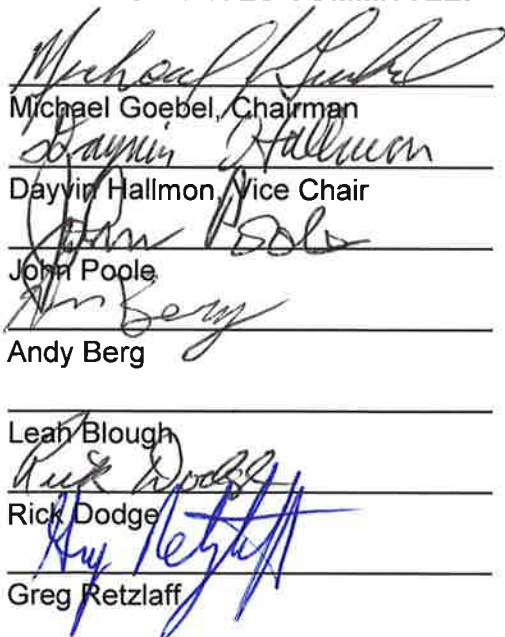 COMMITTEE:
Michael Goebel
Michael Goebel, Chairman
Dayvin Hallmon
Dayvin Hallmon, Vice Chair
John Poole
John Poole
Berg
Andy Berg
Leah Blough
Rick Dodge
Rick Dodge
Greg Retzlaff
Greg Retzlaff